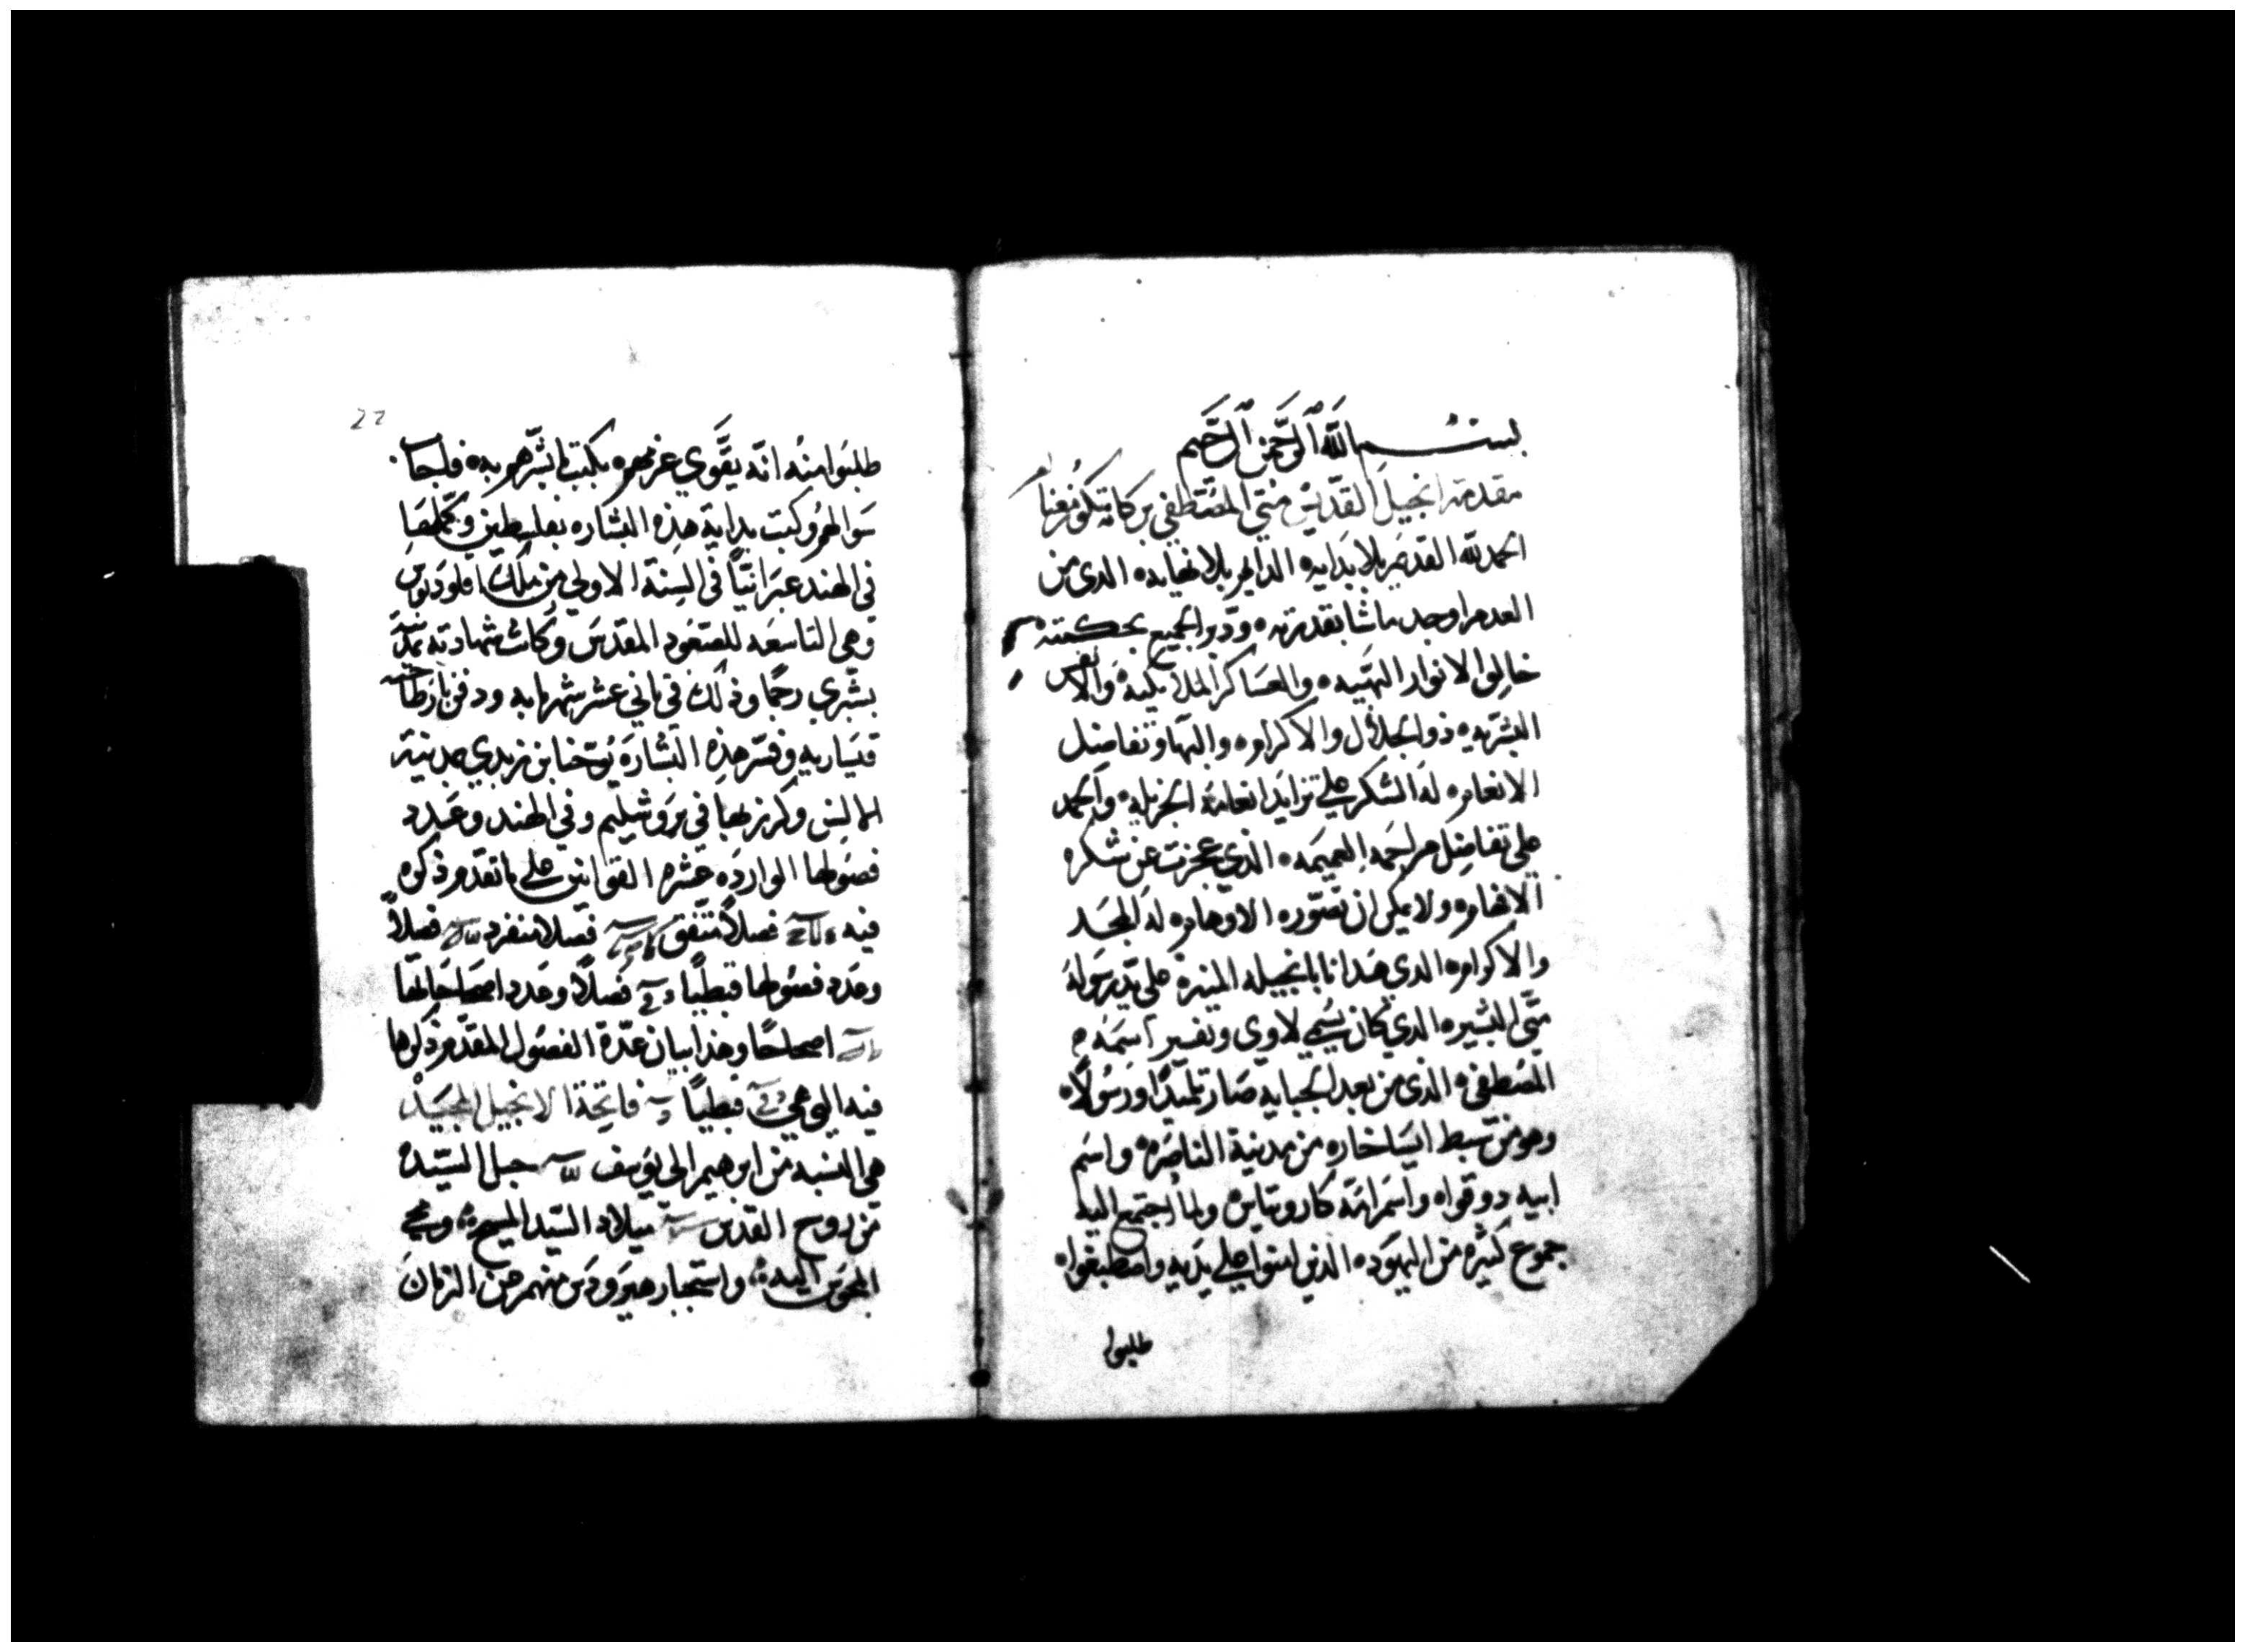 بسم الله الرحمن الرحيم
مقدمة انجيل القديس متي المصطفي بركاته تكون معنا
الحمد لله القديم بلا بدايه الدايم بلا نهايه الدى من
العدم اوجد ماشا بقدرته ودبر الجميع بحكمته
خالق الانوار البهيه والعساكر الملايكيه والانفس
البشريه ذو الجلال والاكرام والبها وتفاضل
الانعام له الشكر علي تزايد انعامه الجزيله والحمد
علي تفاضل مراحمه العميمه الذي عجزت عن شكره
الافهام ولا يمكن ان تصوره الاوهام له المجد
والاكرام الدي هدانا بانجيله المنير علي يد رسوله
متي البشير الدي كان يسمي لاوي وتفسير اسمه
المصطفي الذي من بعد الجبايه صار تلميدا ورسولا
وهو من سبط ايساخار من مدينة الناصره واسم
ابيه دوقوا واسم امه كاروتياس ولما اجتمع اليه
جموع كثيره من اليهود الذين امنوا علي يديه واصطبغوا
طلبوا
22
طلبوا منه انه يقوي عزمهم بكتب مابشرهم به فاجاب
سوالهم وكتب بداية هذه البشاره بفلسطين وكملها
في الهند عبرانيًا في السنة الاولي من ملك اقلوديوس
وهي التاسعه للصعود المقدس وكانت شهادته بمدينة
بشبري رجمًا وذلك في ثاني عشر شهر بابه ودفن بارطاجنه
قيساريه وفسر هذه البشارة يوحنا بن زبدي بمدينة
وكرز بها في يروشليم وفي الهند وعدد
فصولها الوارده عشره القوانين علي ماتقدم ذكره
فيه فصلا متفق فصلا منفرد فصلاً
وعدد فصولها قبطيًا فصلاً وعدد اصحاحاتها
اصحاحًا وهذا بيان عدة الفصول المقدم ذكرها
فيه التي هي قبطيًا فاتحة الانجيل المجيد
هي النسبه من ابرهيم الي يوسف حبل السيده
من روح القدس ميلاد السيد المسيح ومجي
المجوس اليه واستخبار هيرودس منهم عن الزمان